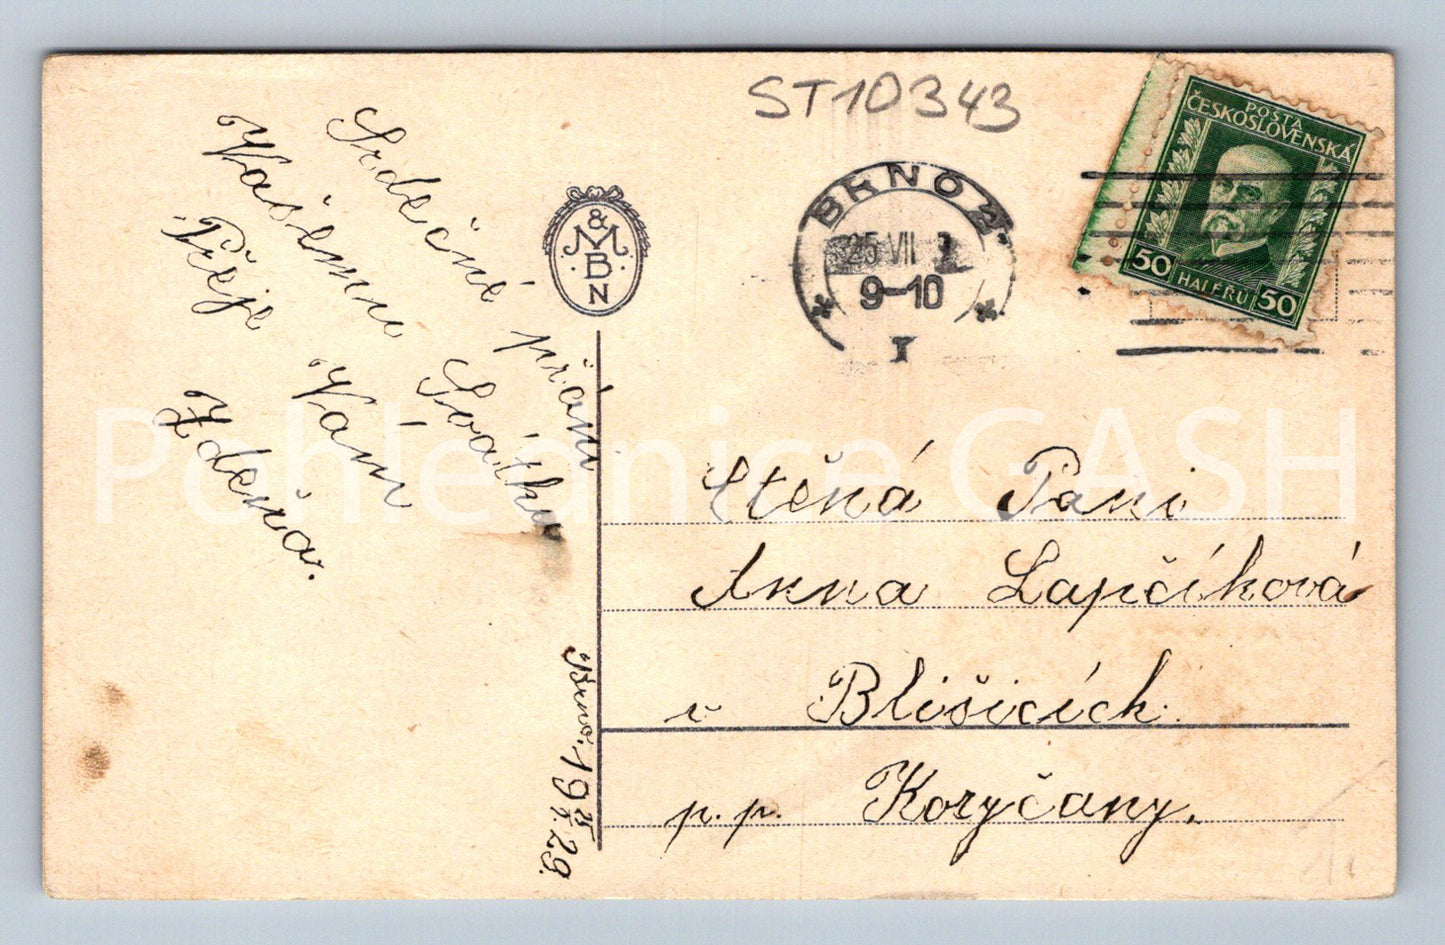 ST10343
POSTA
ČESKOSLOVENSKÁ
50 HALÉRU 50
BRNO 2
25 VII
9-10
I
&
M
B
N
Srdečné přání
Vašemu Svátku
Přeje Vám
Zdena.
Brno. 19 29.
Ctěná Pani
Anna Lapčíková
v Blišicích.
p. p. Koryčany.
Pohlednice GASH